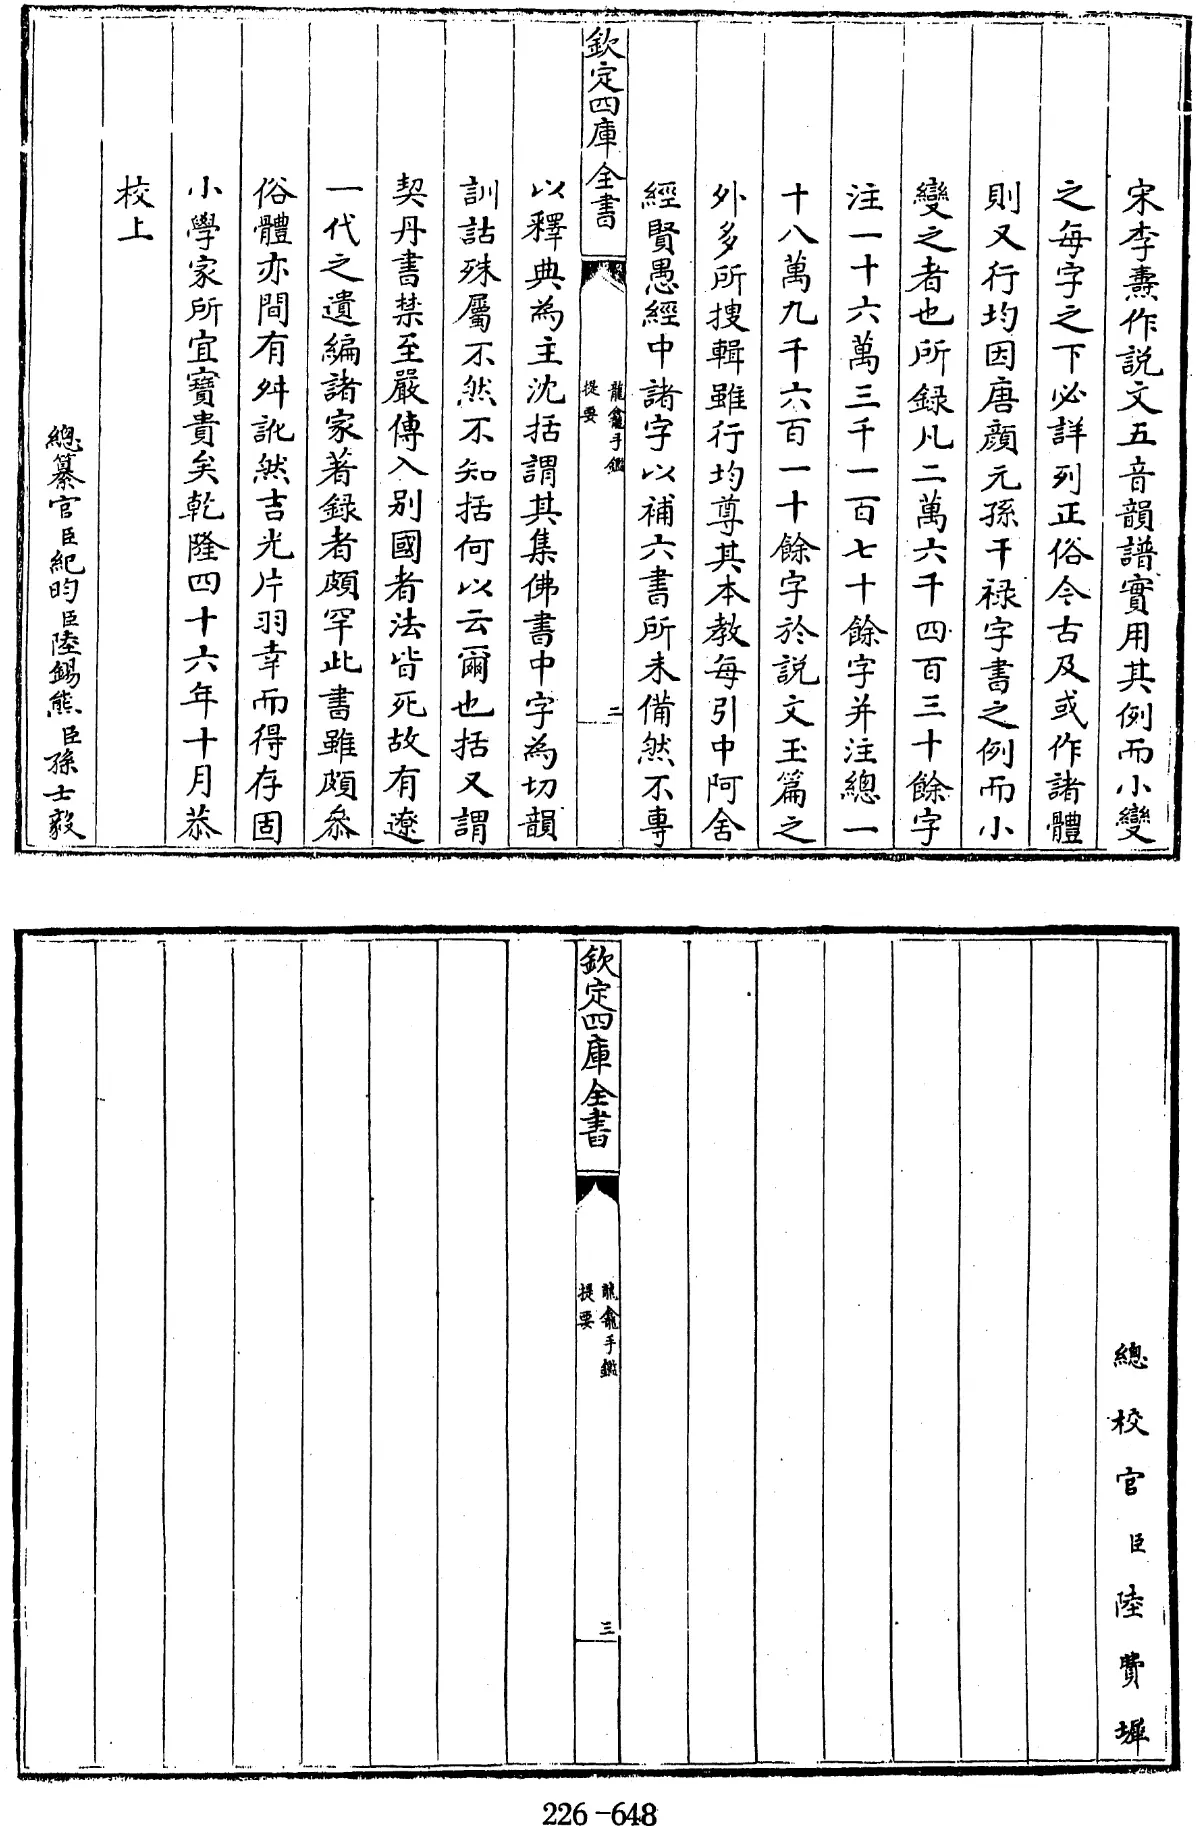 宋李燾作説文五音韻譜實用其例而小變
之每字之下必詳列正俗今古及或作諸體
則又行均因唐顔元孫干禄字書之例而小
變之者也所録凡二萬六千四百三十餘字
注一十六萬三千一百七十餘字并注總一
十八萬九千六百一十餘字於説文玉篇之
外多所搜輯雖行均尊其本教每引中阿含
經賢愚經中諸字以補六書所未備然不專
欽定四庫全書
龍龕手鑑
提要
二
以釋典為主沈括謂其集佛書中字為切韻
訓詁殊屬不然不知括何以云爾也括又謂
契丹書禁至嚴傳入别國者法皆死故有遼
一代之遺編諸家著録者頗罕此書雖頗叅
俗體亦間有舛訛然吉光片羽幸而得存固
小學家所宜寳貴矣乾隆四十六年十月恭
校上
總纂官臣紀昀臣陸錫熊臣孫士毅
總校官臣陸費墀
欽定四庫全書
龍龕手鑑
提要
三
226-648